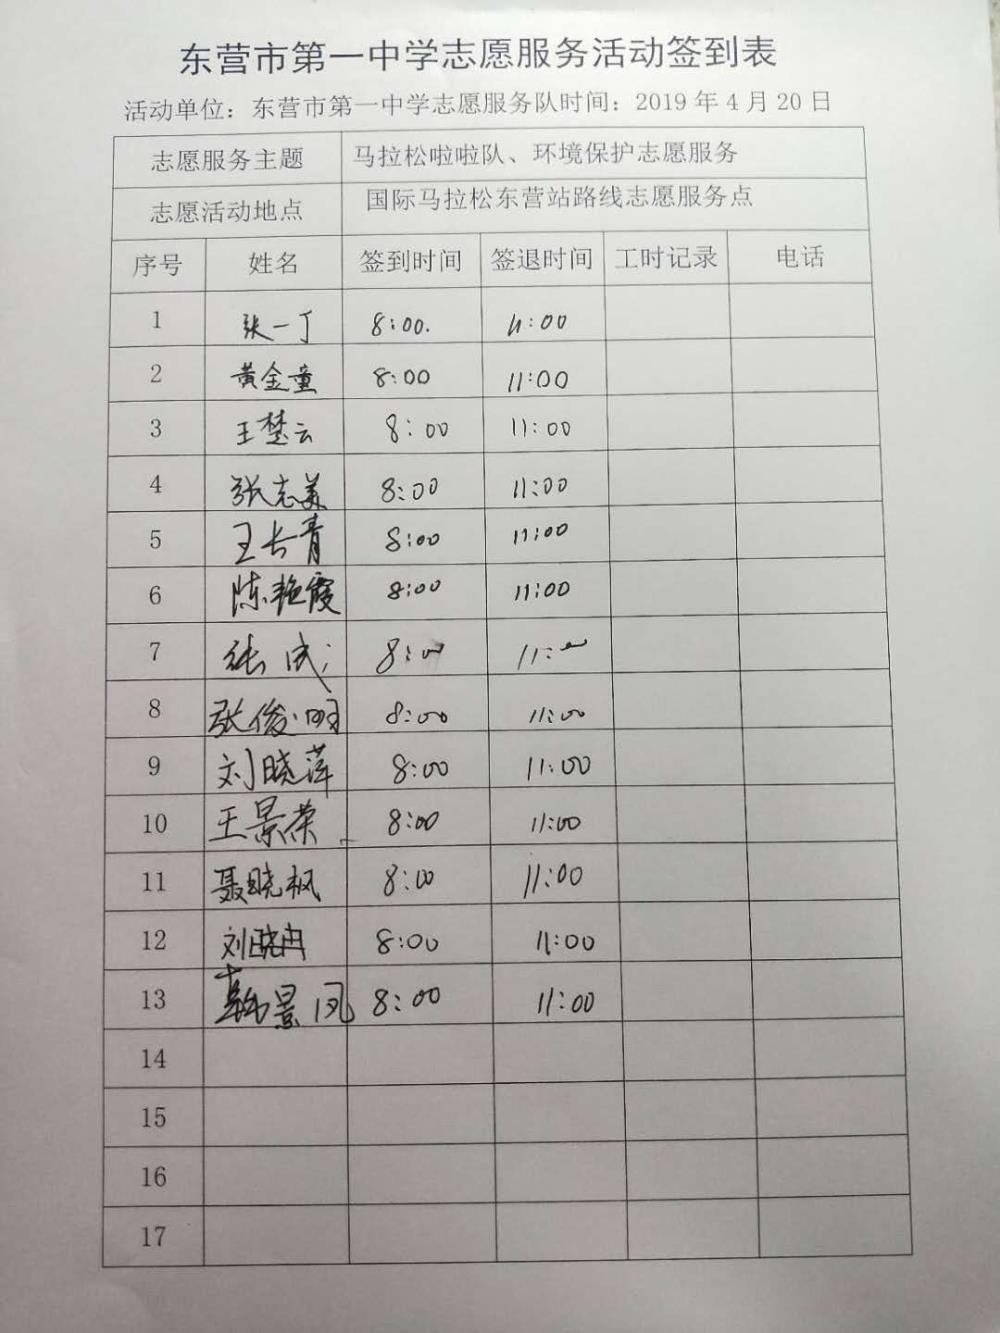 东营市第一中学志愿服务活动签到表
活动单位：东营市第一中学志愿服务队时间：2019 年 4 月 20 日
志愿服务主题 马拉松啦啦队、环境保护志愿服务
志愿活动地点 国际马拉松东营站路线志愿服务点
序号 姓名 签到时间 签退时间 工时记录 电话
1 张一丁 8:00. 11:00
2 黄金童 8:00 11:00
3 王楚云 8:00 11:00
4 张志美 8:00 11:00
5 王长青 8:00 11:00
6 陈艳霞 8:00 11:00
7 张成 8:00 11:00
8 张俊明 8:00 11:00
9 刘晓萍 8:00 11:00
10 王景荣 8:00 11:00
11 聂晓枫 8:00 11:00
12 刘晓冉 8:00 11:00
13 韩景凤 8:00 11:00
14
15
16
17